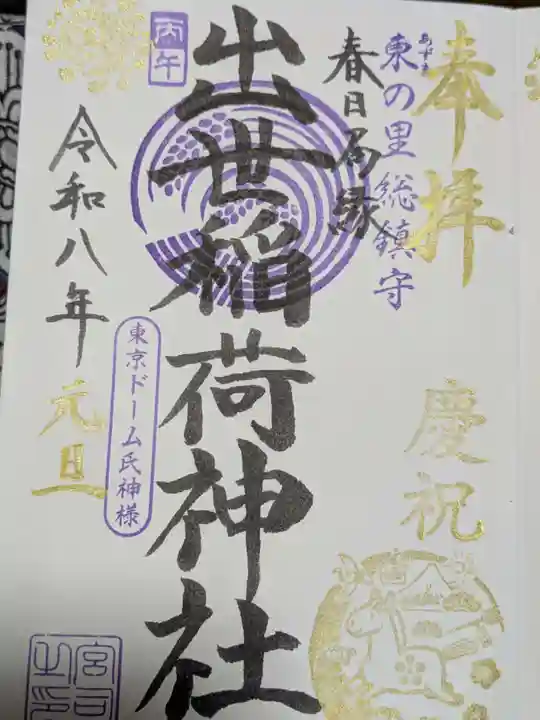 奉拝
慶祝
あずま
東の里総鎮守
春日局縁
出世稲荷神社
丙午
東京ドーム氏神様
令和八年
元旦
宮司之印